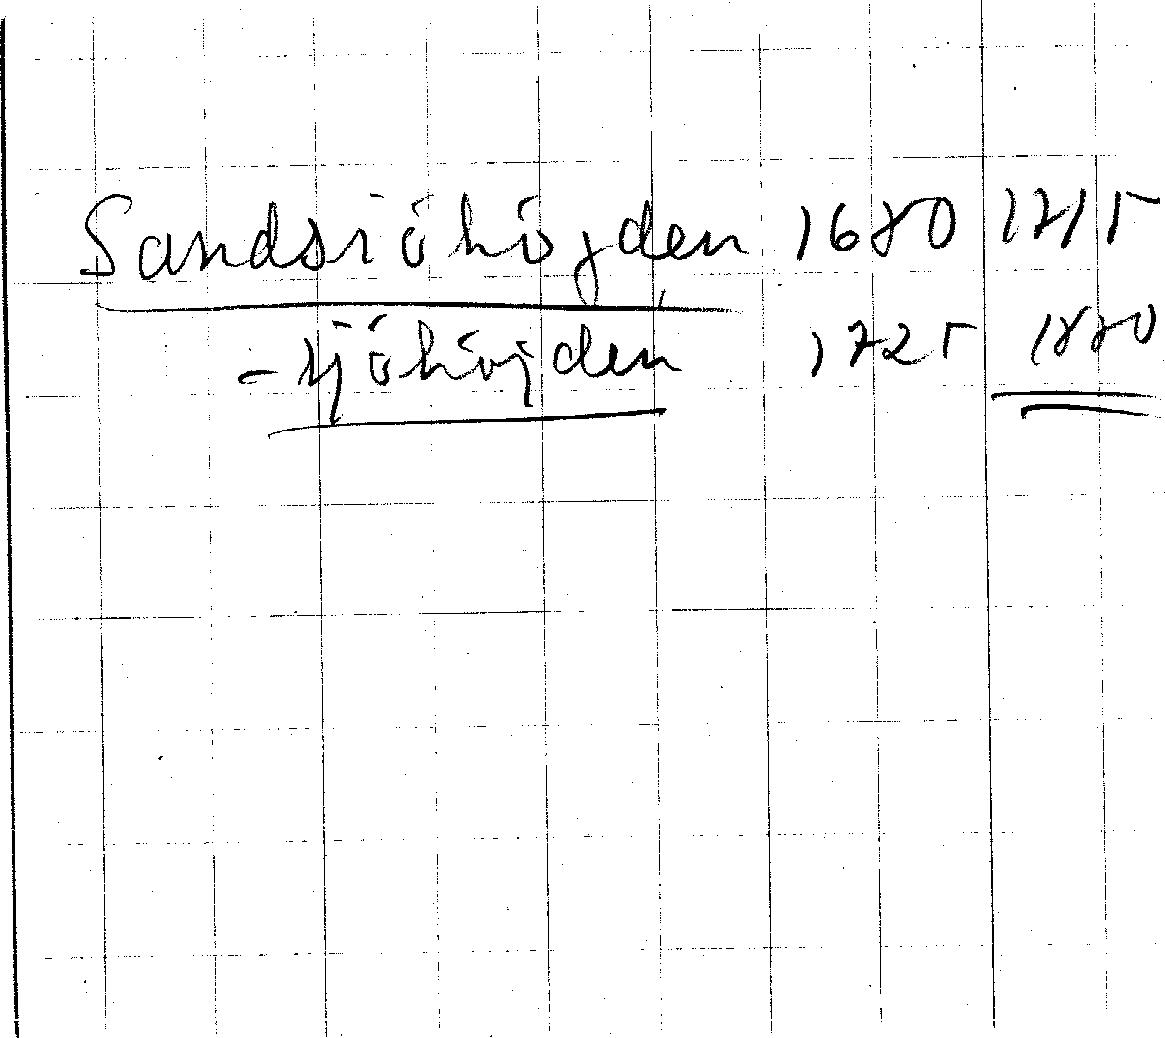 Sandsjöhöjden 1680 1715
- sjöhöjden 1725 1870